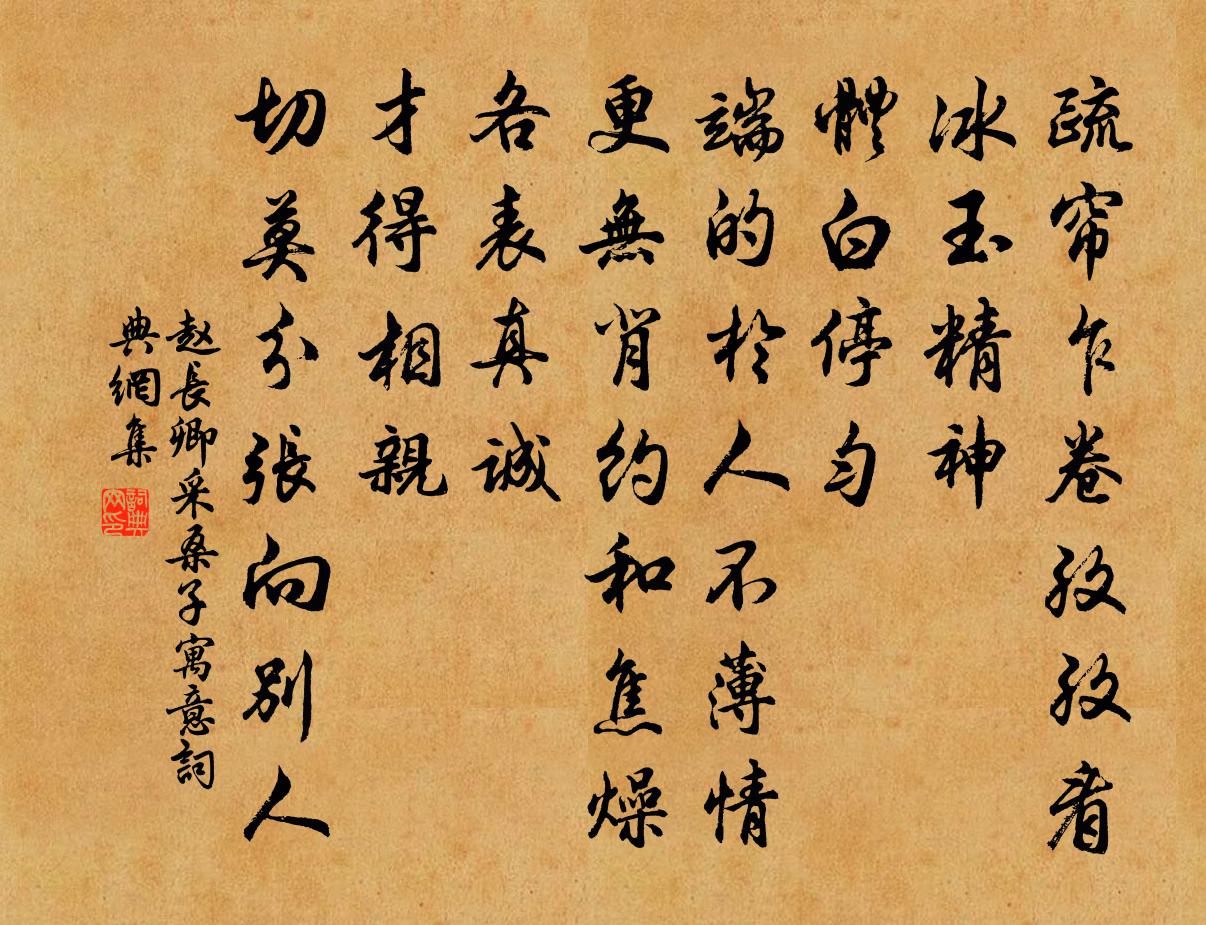 疏帘乍卷孜孜看
冰玉精神
體白停匀
端的於人不薄情
更無肯約和焦燥
各表真誠
才得相親
切莫分張向別人
赵長卿采桑子寓意詞
典網集
詞典
网印